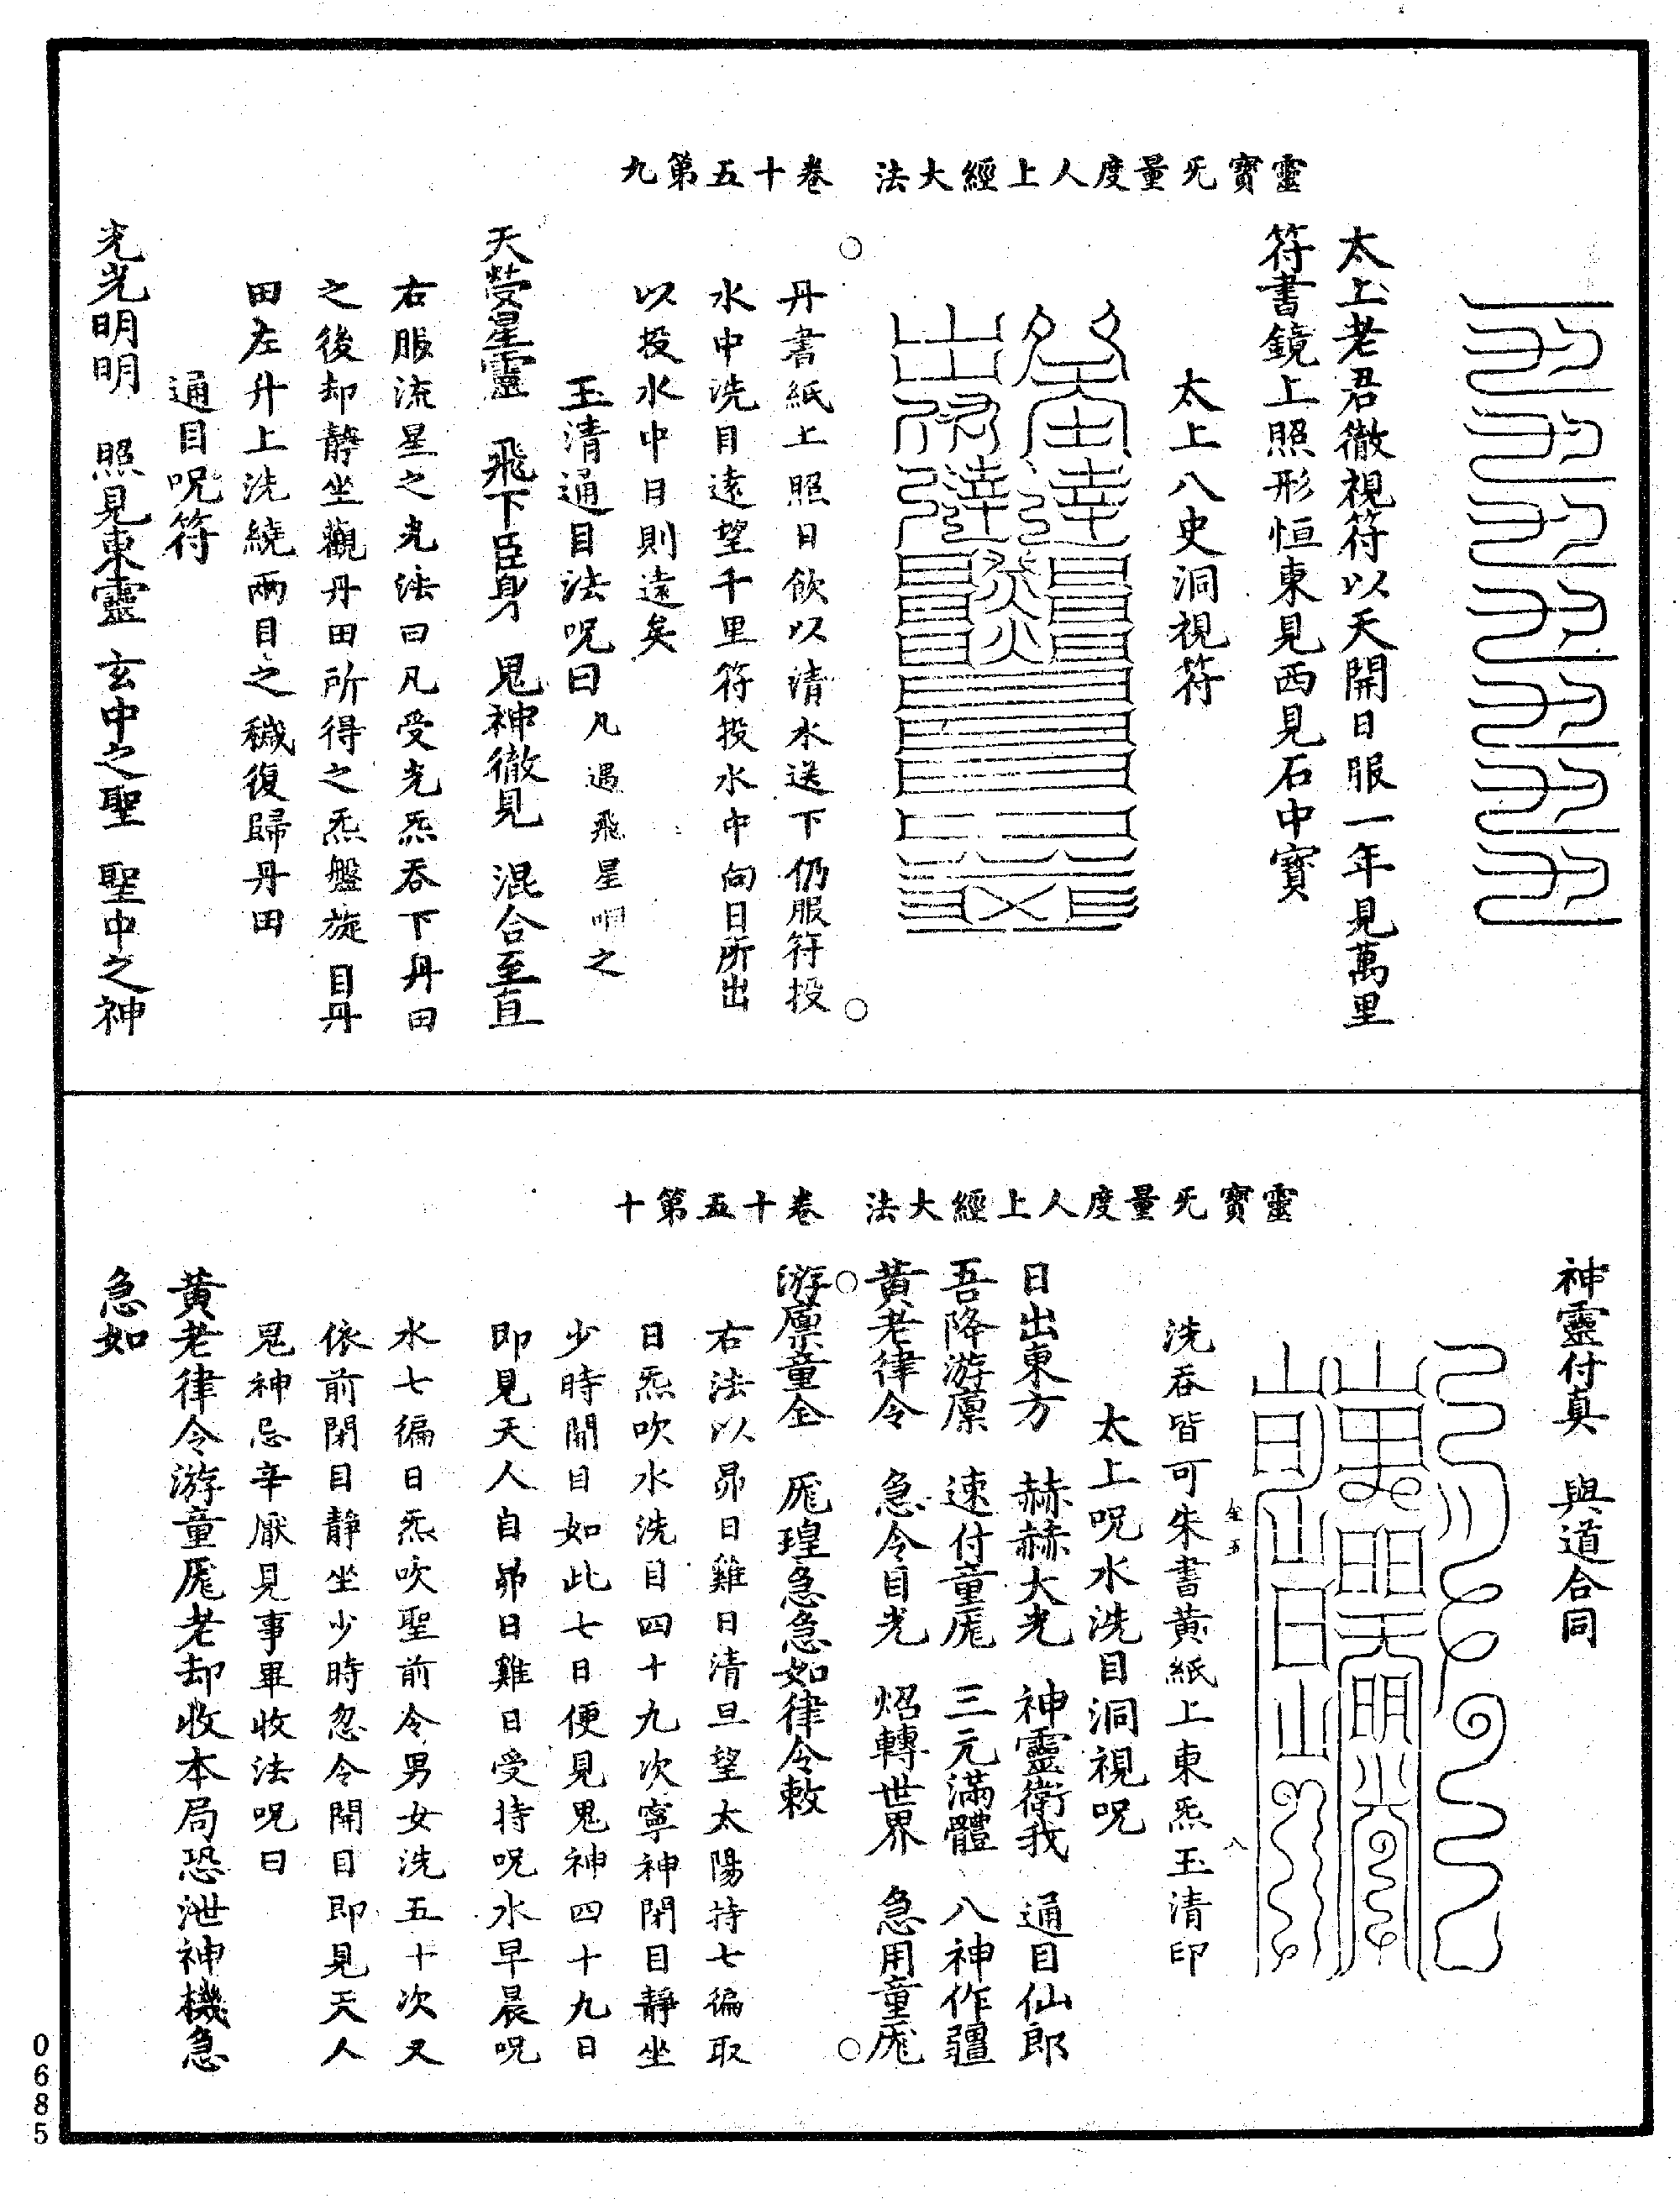 靈寶无量度人上經大法　卷十五第九
太上老君徹視符以天開日服一年見萬里
符書鏡上照形恒東見西見石中寶
太上八史洞視符
丹書紙上照日飲以清水送下仍服符投
水中洗目遠望千里符投水中向日所出
以投水中目則遠矣
玉清通目法呪曰凡遇飛星呬之
天熒星靈　飛下臣身　鬼神徹見　混合至直
右服流星之光法曰凡受光炁吞下丹田
之後却靜坐觀丹田所得之炁盤旋目丹
田左升上洗繞兩目之穢復歸丹田
通目呪符
光光明明　照見東靈　玄中之聖　聖中之神
靈寶无量度人上經大法　卷十五第十
神靈付真　與道合同
洗吞皆可朱書黃紙上東炁玉清印
太上呪水洗目洞視呪
日出東方　赫赫大光　神靈衛我　通目仙郎
吾降游廩　速付童厖　三元滿體　八神作疆
黃老律令　急令目光　炤轉世界　急用童厖
游廩童全　厖瑝急急如律令敕
右法以昴日雞日清旦望太陽持七徧取
日炁吹水洗目四十九次寧神閉目靜坐
少時開目如此七日便見鬼神四十九日
即見天人自昴日雞日受持呪水早晨呪
水七徧日炁吹聖前令男女洗五十次又
依前閉目靜坐少時忽令開目即見天人
鬼神忌辛厭見事畢收法呪曰
黃老律令游童厖老却收本局恐泄神機急
急如
0685